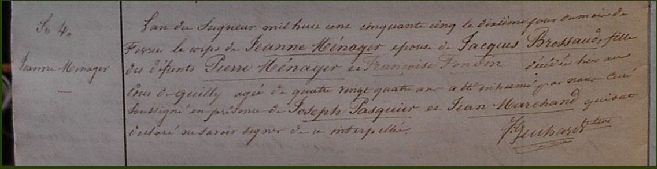 S. 4.
Jeanne Menager
L'an du Seigneur mil huit cent cinquante cinq le dixième jour du mois de
Fevrier le corps de Jeanne Ménager épouse de Jacques Brossaud, fille
des défunts Pierre Ménager et Françoise décédée hier au
bois de quilly agée de quatre vingt quatre ans a été inhumé par nous Curé
soussigné en présence de Joseph Pasquier et Jean Marchand qui ont
declaré ne savoir signer de ce interpellés.